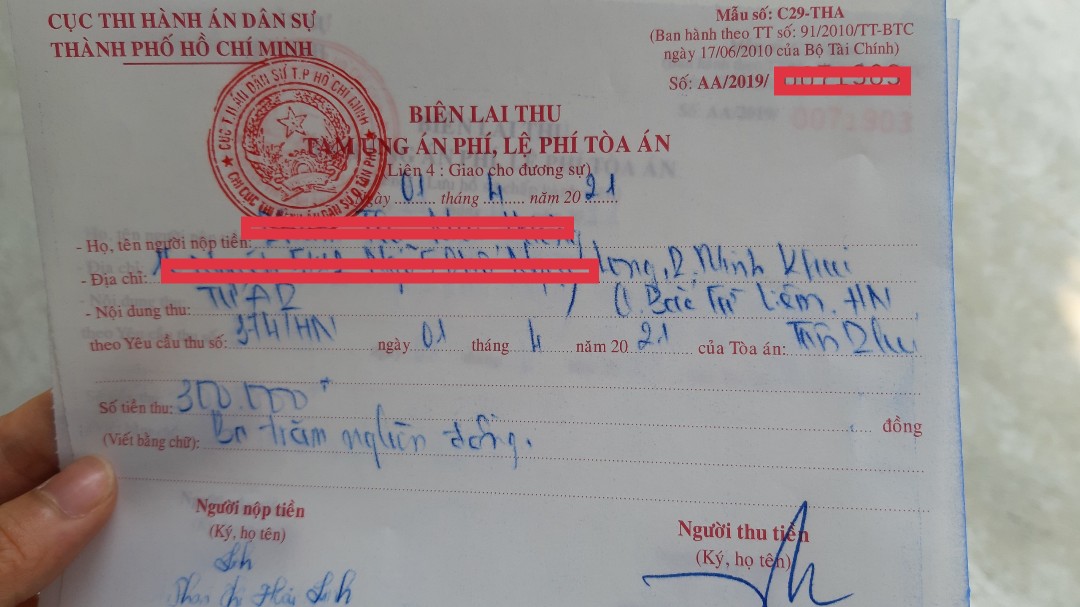 CỤC THI HÀNH ÁN DÂN SỰ
THÀNH PHỐ HỒ CHÍ MINH
Mẫu số: C29-THA
(Ban hành theo TT số: 91/2010/TT-BTC
ngày 17/06/2010 của Bộ Tài Chính)
Số: AA/2019/
BIÊN LAI THU
TẠM ỨNG ÁN PHÍ, LỆ PHÍ TÒA ÁN
(Liên 4 : Giao cho đương sự)
Ngày 01 tháng 4 năm 2021
- Họ, tên người nộp tiền:
- Địa chỉ: Minh Khai
- Nội dung thu: TƯAP Q. Bắc Từ Liêm. HN
theo Yêu cầu thu số: 374/HN ngày 01 tháng 4 năm 2021 của Tòa án: Tân Phú
Số tiền thu: 300.000 đồng
(Viết bằng chữ): Ba trăm nghìn đồng.
Người nộp tiền
(Ký, họ tên)
Người thu tiền
(Ký, họ tên)